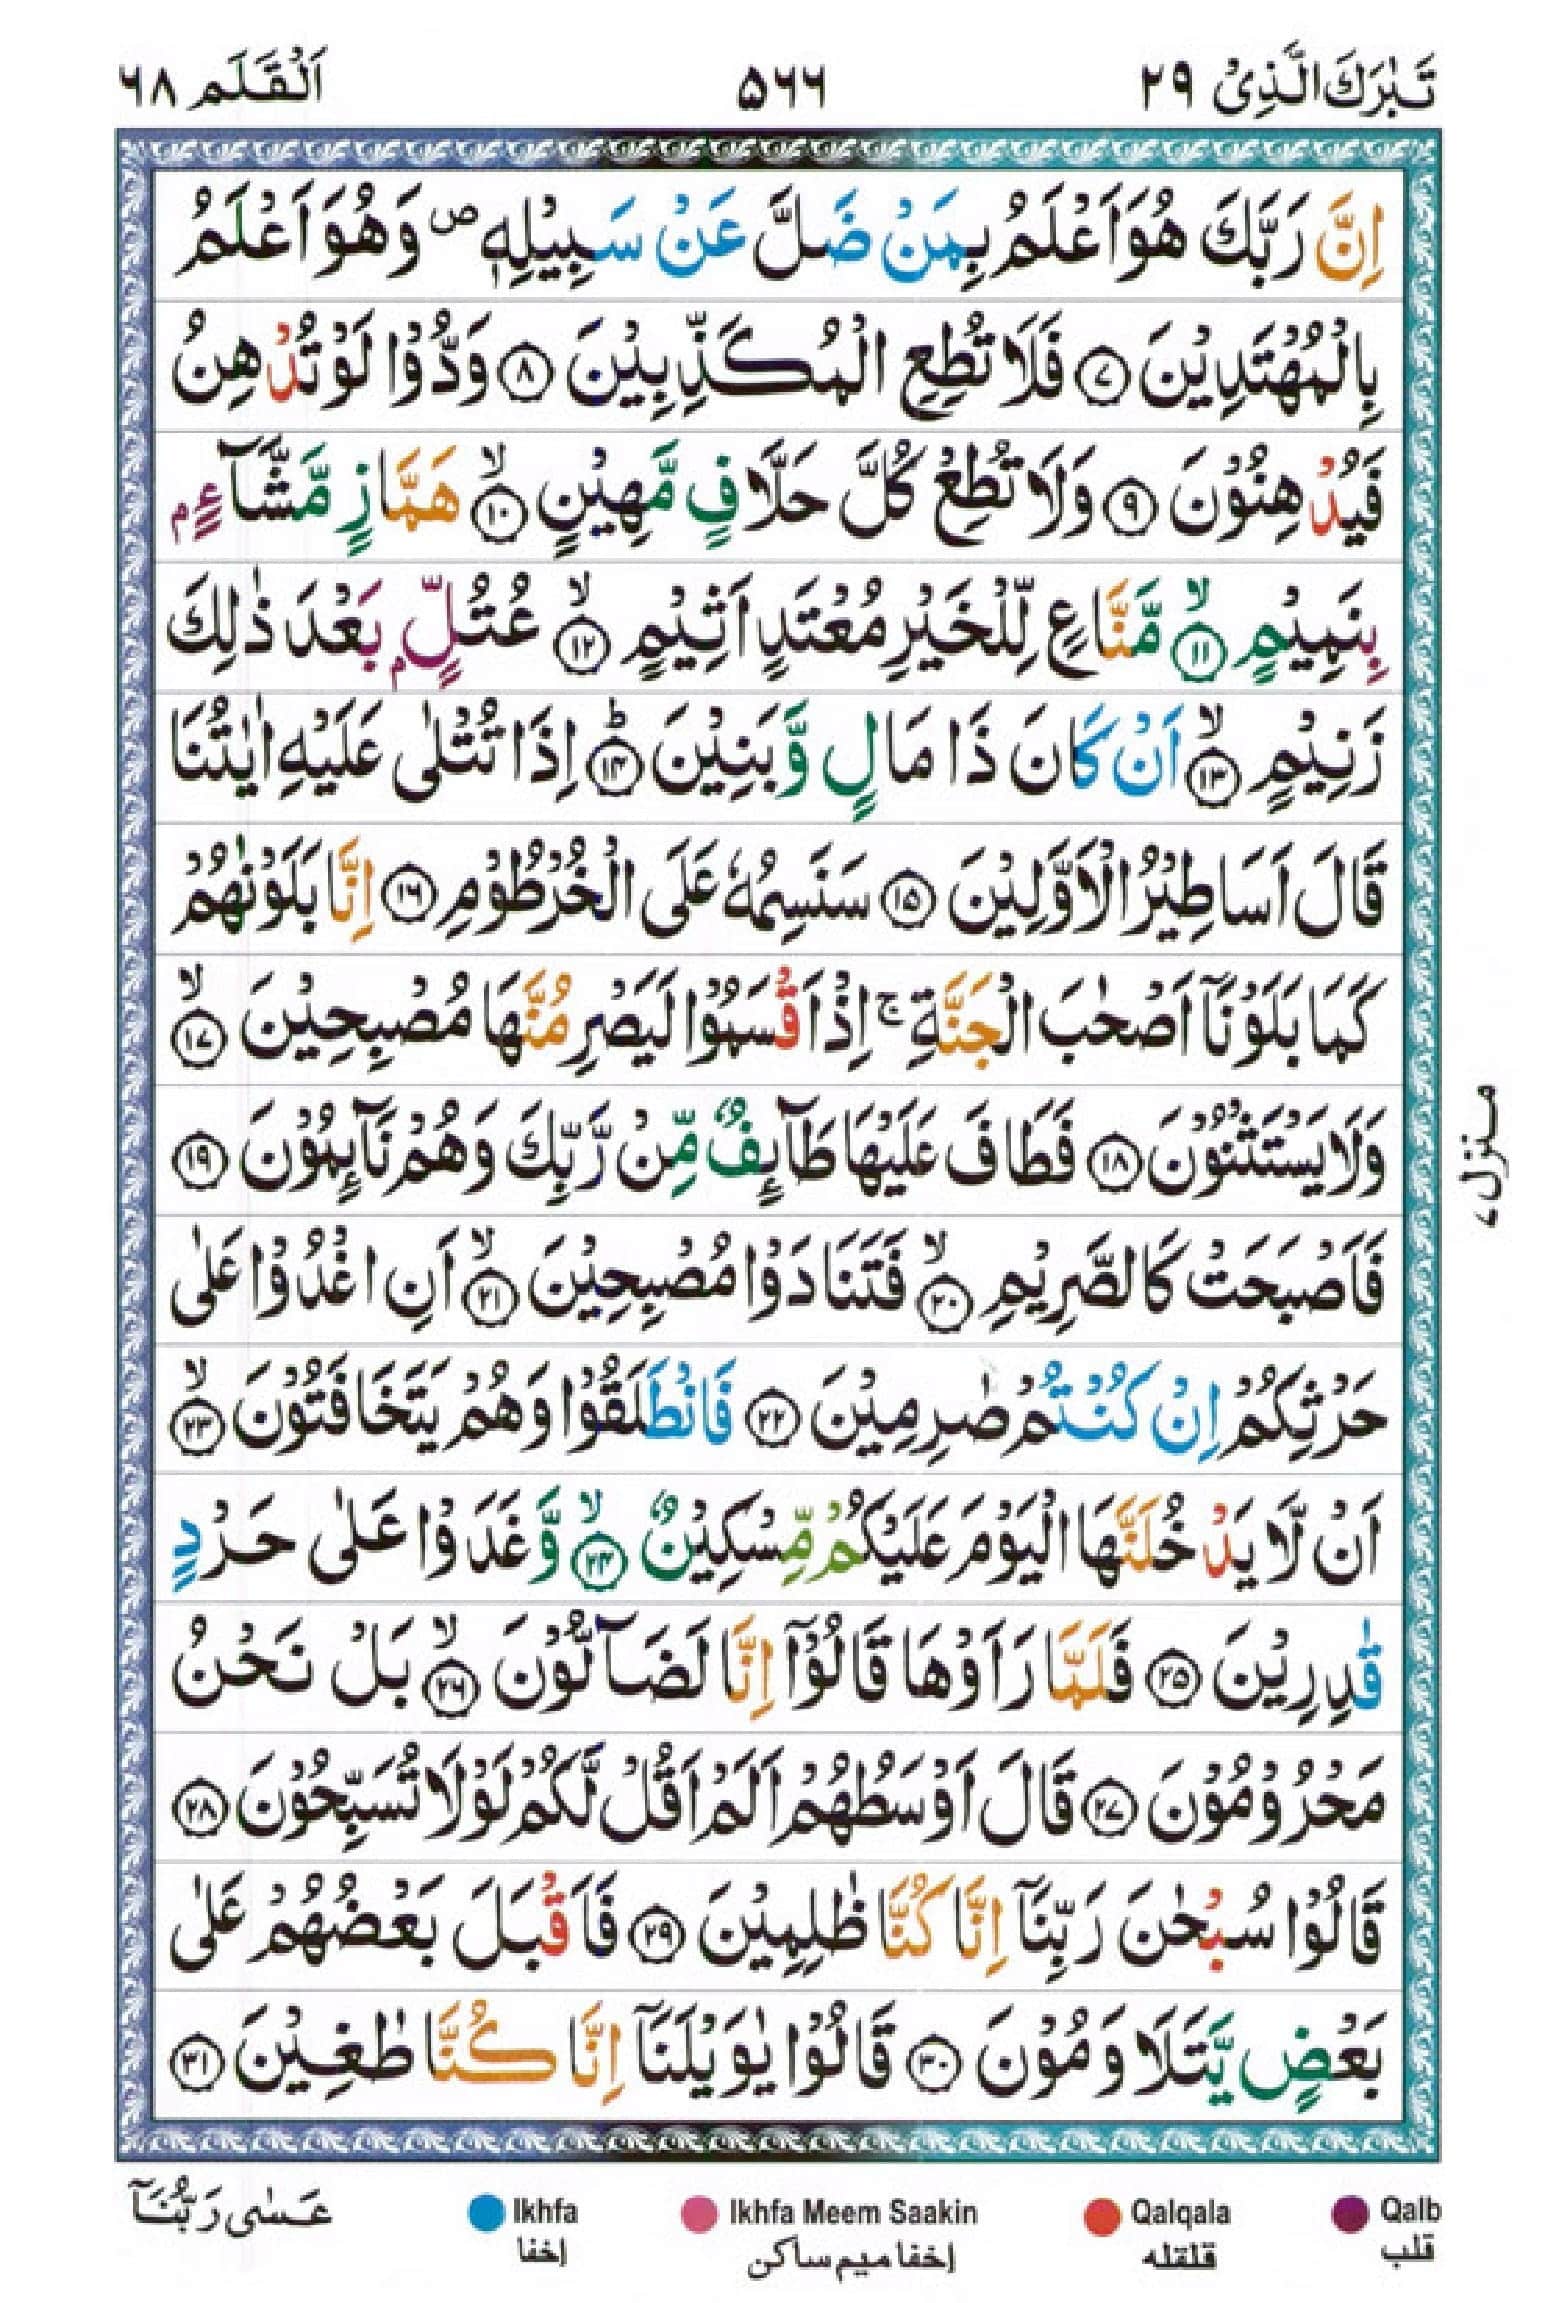 تَبٰرَكَ الَّذِىْ ٢٩
٥٦٦
اَلْقَلَم ٦٨
اِنَّ رَبَّكَ هُوَ اَعْلَمُ بِمَنْ ضَلَّ عَنْ سَبِيْلِهٖ ۖ وَهُوَ اَعْلَمُ
بِالْمُهْتَدِيْنَ ۝٧ فَلَا تُطِعِ الْمُكَذِّبِيْنَ ۝٨ وَدُّوْا لَوْ تُدْهِنُ
فَيُدْهِنُوْنَ ۝٩ وَلَا تُطِعْ كُلَّ حَلَّافٍ مَّهِيْنٍ ۙ۝١٠ هَمَّازٍ مَّشَّآءٍۢ
بِنَمِيْمٍ ۙ۝١١ مَّنَّاعٍ لِّلْخَيْرِ مُعْتَدٍ اَثِيْمٍ ۙ۝١٢ عُتُلٍّۢ بَعْدَ ذٰلِكَ
زَنِيْمٍ ۙ۝١٣ اَنْ كَانَ ذَا مَالٍ وَّبَنِيْنَ ؕ۝١٤ اِذَا تُتْلٰى عَلَيْهِ اٰيٰتُنَا
قَالَ اَسَاطِيْرُ الْاَوَّلِيْنَ ۝١٥ سَنَسِمُهٗ عَلَى الْخُرْطُوْمِ ۝١٦ اِنَّا بَلَوْنٰهُمْ
كَمَا بَلَوْنَآ اَصْحٰبَ الْجَنَّةِ ۚ اِذْ اَقْسَمُوْا لَيَصْرِمُنَّهَا مُصْبِحِيْنَ ۙ۝١٧
وَلَا يَسْتَثْنُوْنَ ۝١٨ فَطَافَ عَلَيْهَا طَآئِفٌ مِّنْ رَّبِّكَ وَهُمْ نَآئِمُوْنَ ۝١٩
فَاَصْبَحَتْ كَالصَّرِيْمِ ۙ۝٢٠ فَتَنَادَوْا مُصْبِحِيْنَ ۙ۝٢١ اَنِ اغْدُوْا عَلٰى
حَرْثِكُمْ اِنْ كُنْتُمْ صٰرِمِيْنَ ۝٢٢ فَانْطَلَقُوْا وَهُمْ يَتَخَافَتُوْنَ ۙ۝٢٣
اَنْ لَّا يَدْخُلَنَّهَا الْيَوْمَ عَلَيْكُمْ مِّسْكِيْنٌ ۙ۝٢٤ وَّغَدَوْا عَلٰى حَرْدٍ
قٰدِرِيْنَ ۝٢٥ فَلَمَّا رَاَوْهَا قَالُوْٓا اِنَّا لَضَآلُّوْنَ ۙ۝٢٦ بَلْ نَحْنُ
مَحْرُوْمُوْنَ ۝٢٧ قَالَ اَوْسَطُهُمْ اَلَمْ اَقُلْ لَّكُمْ لَوْلَا تُسَبِّحُوْنَ ۝٢٨
قَالُوْا سُبْحٰنَ رَبِّنَآ اِنَّا كُنَّا ظٰلِمِيْنَ ۝٢٩ فَاَقْبَلَ بَعْضُهُمْ عَلٰى
بَعْضٍ يَّتَلَاوَمُوْنَ ۝٣٠ قَالُوْا يٰوَيْلَنَآ اِنَّا كُنَّا طٰغِيْنَ ۝٣١
منزل ٧
عَسٰى رَبُّنَآ
Ikhfa
إخفا
Ikhfa Meem Saakin
إخفا ميم ساكن
Qalqala
قلقله
Qalb
قلب